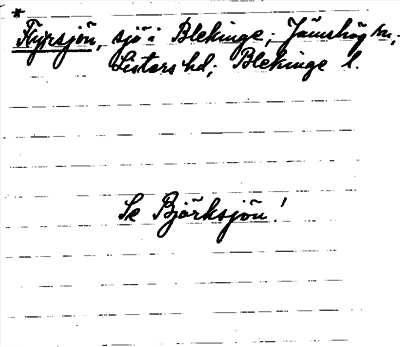 *
Flyxsjön, sjö i Blekinge, Jämshög sn,
Listers hd, Blekinge l.
Se Björksjön!